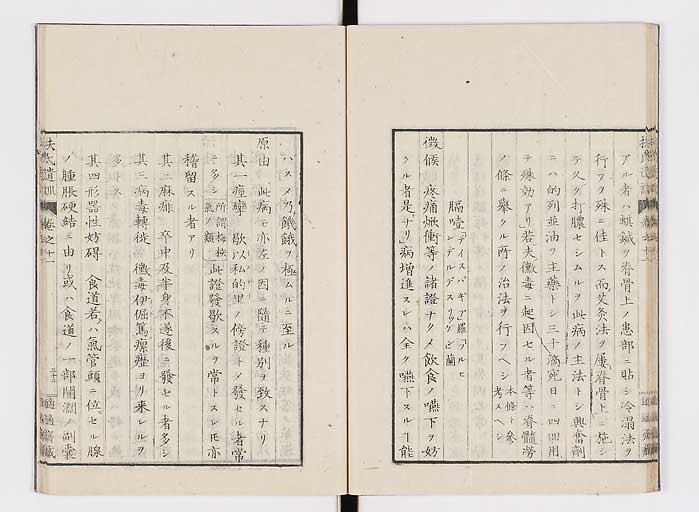 アル者ハ蜞鍼ヲ脊骨上ノ患部ニ貼シ冷溻法ヲ
行フヲ殊ニ佳トス而艾灸法ヲ屢脊骨上ニ施シ
テ久ク打膿セシムルヲ此病ノ主法トシ興奮劑
ニハ的列並油ヲ主藥トシ三十滴宛日ニ四四用
テ殊効アリ若夫黴毒ニ起因セル者等ハ脊髓勞
ノ條ニ舉クル所ノ治法ヲ行フヘシ 本條ト參考スヘシ
膈噎
徴候 疼痛焮衝等ノ諸證ナク飲食ノ嚥下ヲ妨
クル者是ナリ病增進スレハ全ク嚥下スルヿ能
ハスメ乃饑餓ヲ極ムルニ至ル
原由 此病モ亦左ノ因ニ隨テ種別ヲ致スナリ
其一痙攣 歇以私的里ノ傍證トメ發セル者常
ニ多シ 所謂梅核氣ノ類 此證發歇スルヲ常トスレ𪜈亦
稽留スル者アリ
其二麻痺 卒中及半身不遂後ニ發セル者多シ
其三病毒轉徙 黴毒伊倔篤瘰癧ヨリ来レルヲ
多シトス
其四形器性妨碍 食道若ハ氣管頭ニ位セル腺
ノ腫脹硬結ニ由リ或ハ食道ノ一部闊濶ノ副囊
扶氏遺訓 卷之十一